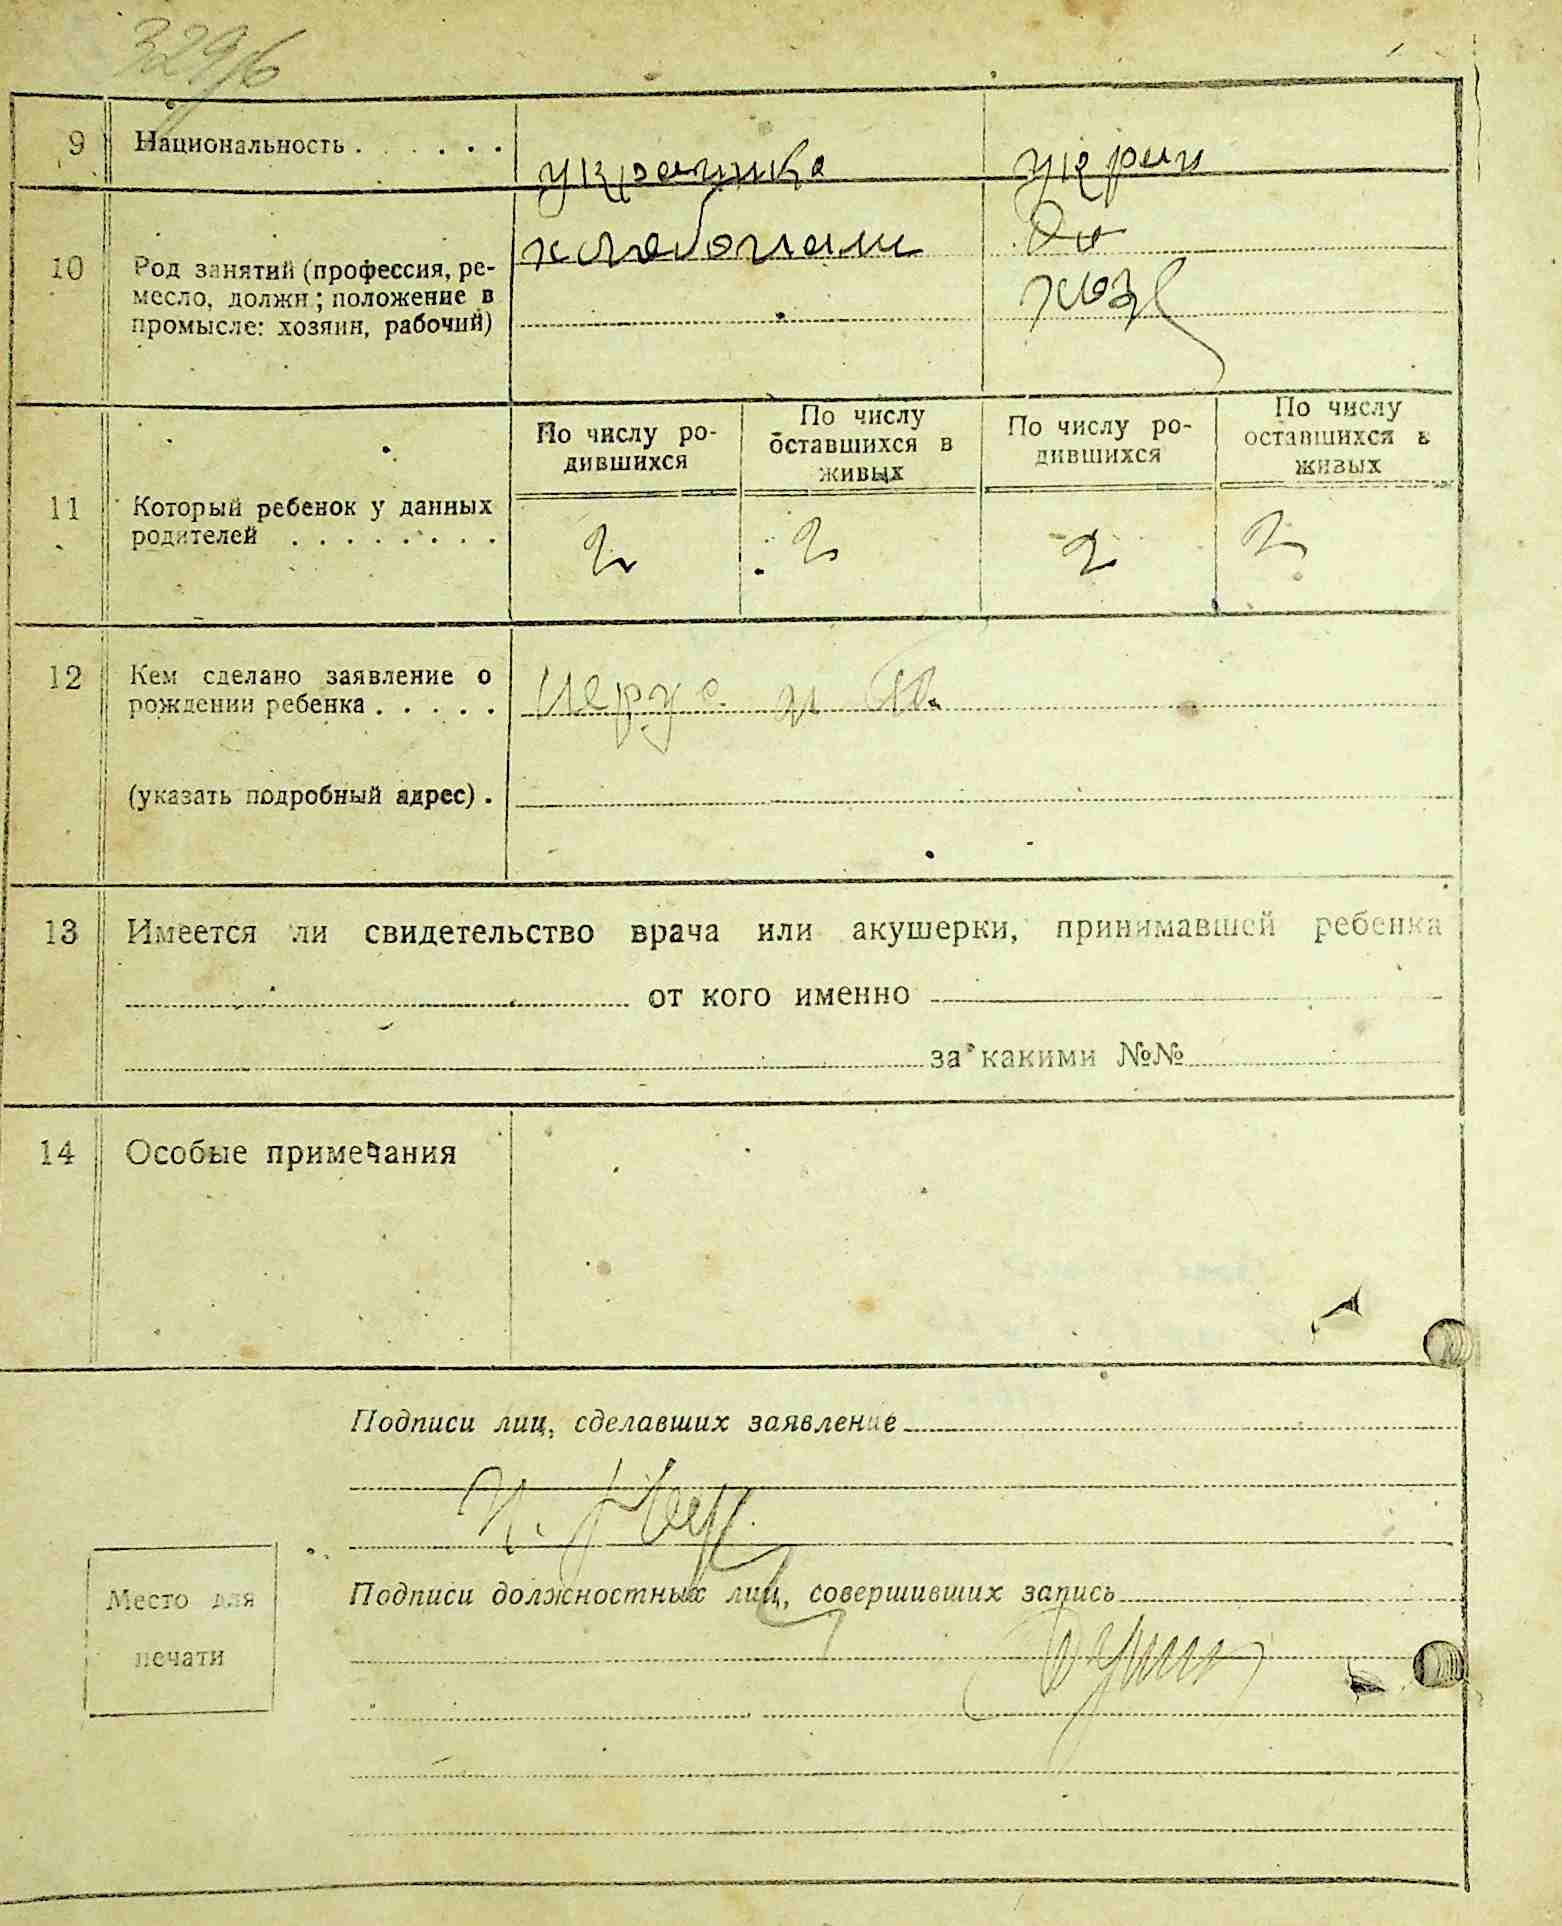 329/6
9 Национальность . . . . . . украинка украин
10 Род занятий (профессия, ре-
месло, должн; положение в
промысле: хозяин, рабочий)
До
хоз
По числу ро-
дившихся
По числу
оставшихся в
живых
По числу ро-
дившихся
По числу
оставшихся в
живых
11 Который ребенок у данных
родителей . . . . . . . .
2 2 2 2
12 Кем сделано заявление о
рождении ребенка . . . . .
(указать подробный адрес) .
13 Имеется ли свидетельство врача или акушерки, принимавшей ребенка
от кого именно
за какими №№
14 Особые примечания
Подписи лиц, сделавших заявление
Место для
печати
Подписи должностных лиц, совершивших запись